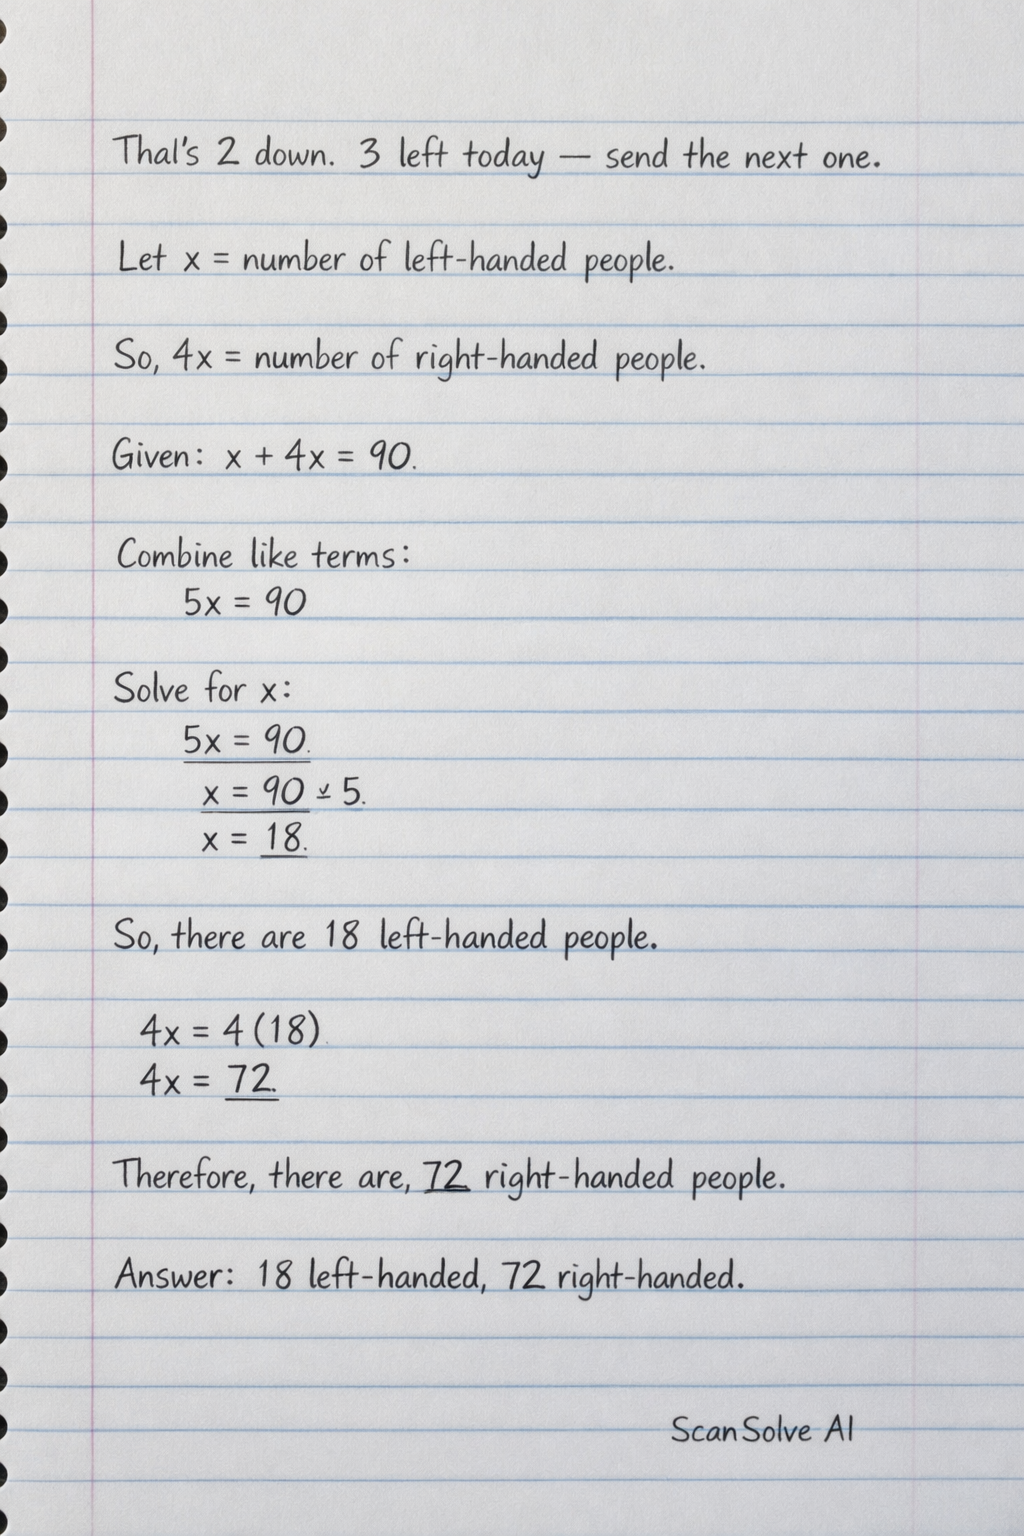 Thal's 2 down. 3 left today — send the next one.
Let x = number of left-handed people.
So, 4x = number of right-handed people.
Given: x + 4x = 90.
Combine like terms:
5x = 90
Solve for x:
5x = 90.
x = 90 5.
x = 18.
So, there are 18 left-handed people.
4x = 4 (18)
4x = 72.
Therefore, there are, 72 right-handed people.
Answer: 18 left-handed, 72 right-handed.
ScanSolve AI